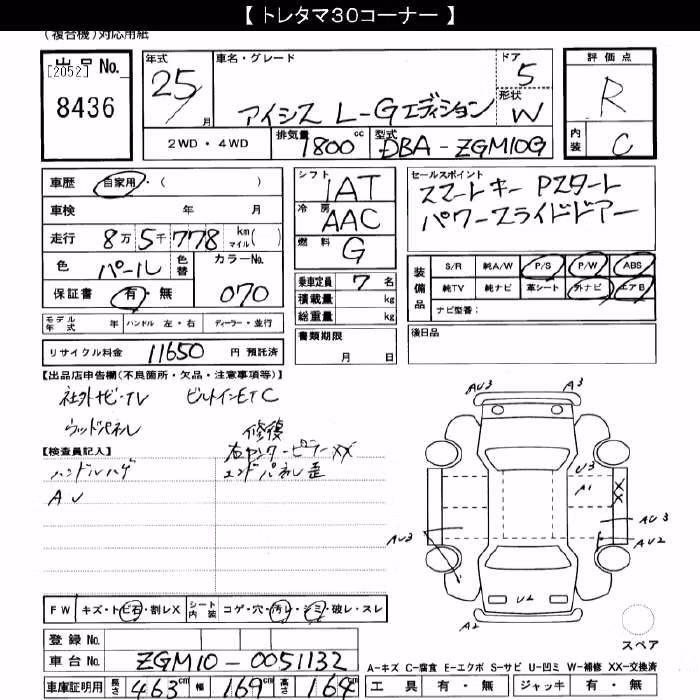 【トレタマ30コーナー】
(複合機)対応用紙
出品No.
[2052]
8436
年式
25
月
車名・グレード
アイシス L-Gエディション
ドア
5
形状
W
評価点
R
内装
C
2WD・4WD
排気量
1800 cc
型式
DBA-ZGM10G
車歴
自家用・( )
車検 年 月
走行 8万5千778 km マイル( )
色 パール 色替 カラーNo.
070
保証書 有・無
モデル年式 年 ハンドル 左・右 ディーラー・並行
リサイクル料金 11650 円 預託済
シフト
IAT
冷房
AAC
燃料
G
乗車定員 7 名
積載量 kg
総重量 kg
書類期限
月 日
セールスポイント
スマートキー Pスタート
パワースライドドアー
装備品
S/R 純A/W P/S P/W ABS
純TV 純ナビ 革シート 外ナビ エアB
ナビ型番:
後日品
【出品店申告欄(不良箇所・欠品・注意事項等)】
社外ナビ・TV ビルトインETC
ウッドパネル
修復
右センターピラーXX
エンドパネル歪
【検査員記入】
ハンドルハゲ
AU
AU3
A3
U3
A1
X
X
AU3
AU2
AU3
U2
A2
スペア
FW キズ・トビ石・割レX シート内装 コゲ・穴・汚レ・シミ・破レ・スレ
登録No.
車台No. ZGM10-0051132
車庫証明用 長さ 463 cm 幅 169 cm 高さ 164 cm
A-キズ C-腐食 E-エクボ S-サビ U-凹ミ W-補修 XX-交換済
工具 有・無 ジャッキ 有・無